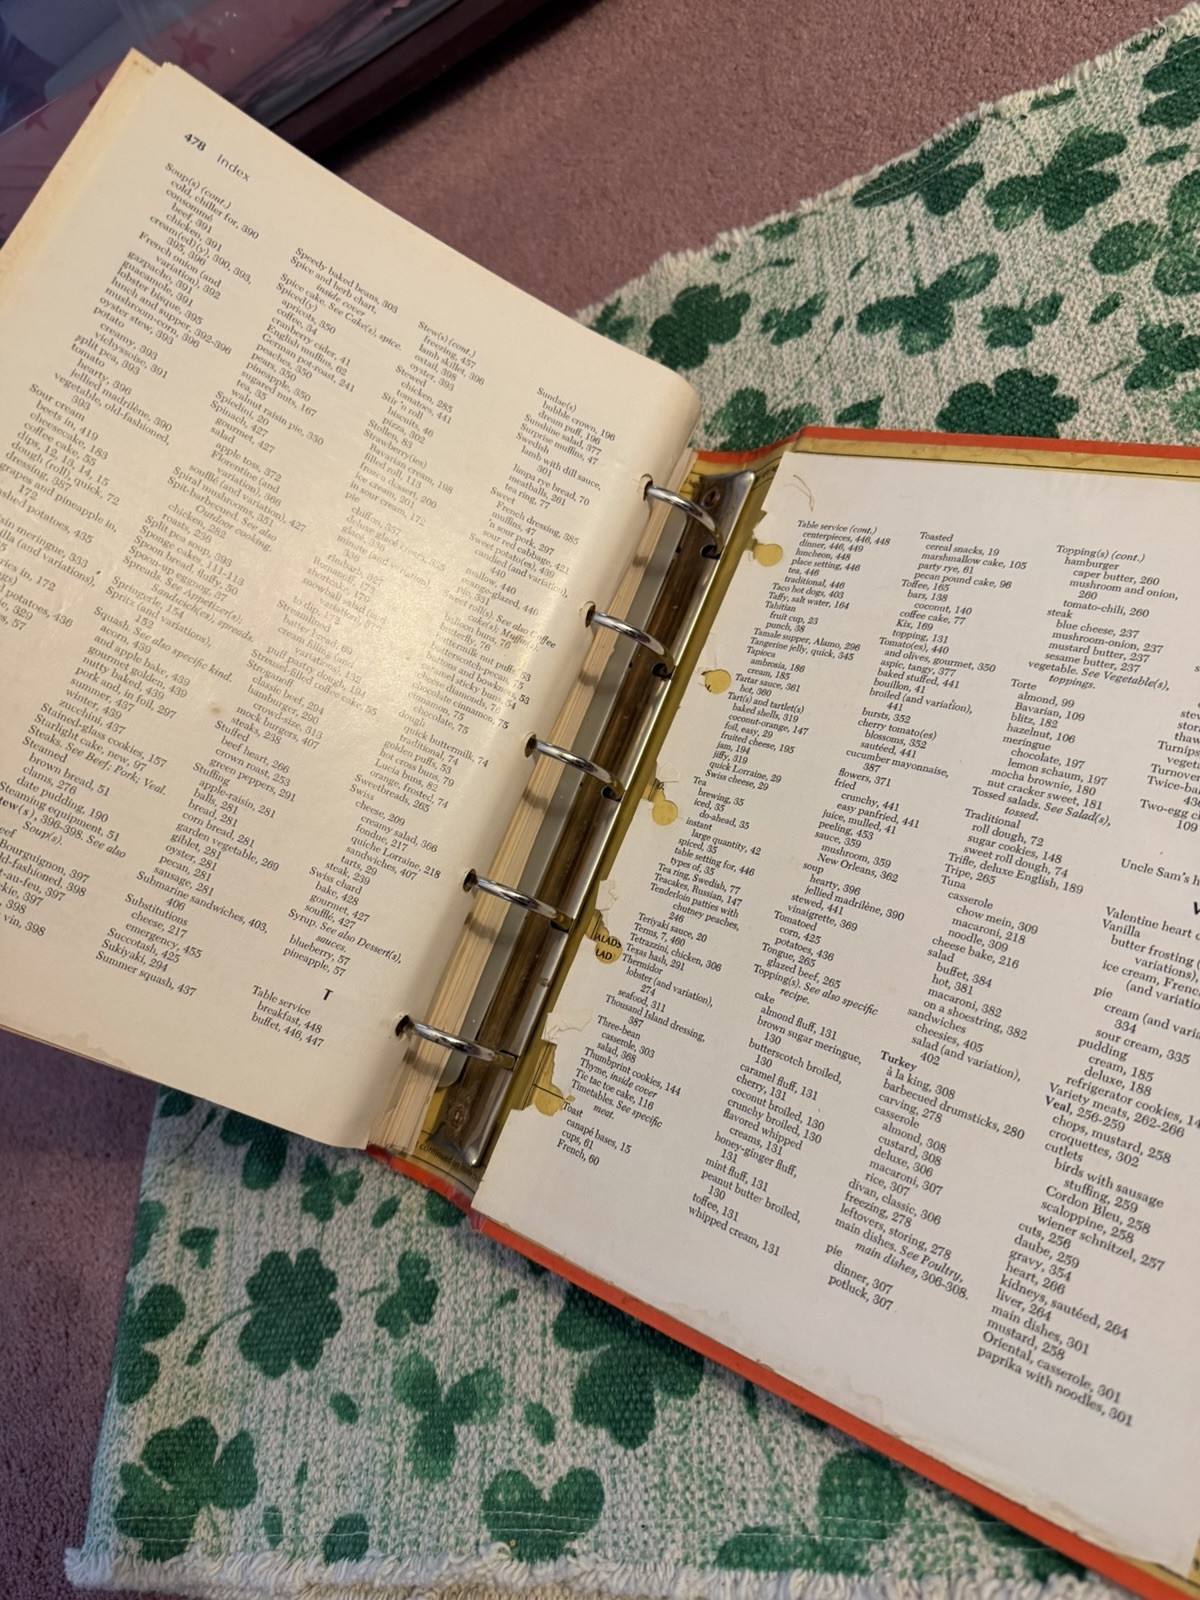 478 Index
Soup(s) (cont.)
cold, chiller for, 390
consommé
beef, 391
chicken, 391
cream(ed)(y), 390, 393,
395, 396
French onion (and
variation), 392
gazpacho, 391
guacamole, 391
lobster bisque, 395
lunch and supper, 392-396
mushroom-corn, 396
oyster stew, 393
potato
creamy, 393
vichyssoise, 391
split pea, 393
tomato
hearty, 396
jellied madrilène, 390
vegetable, old-fashioned,
393
Sour cream
beets in, 419
cheesecake, 183
coffee cake, 55
dips, 12, 13, 14
dough (roll), quick, 72
dressing, 387
grapes and pineapple in,
172
mashed potatoes, 435
meringue, 333
(and variations),
in, 172
potatoes, 436
329
57
Speedy baked beans, 303
Spice and herb chart,
inside cover
Spice cake. See Cake(s), spice.
Spiced(y)
apricots, 350
coffee, 34
cranberry cider, 41
English muffins, 62
German pot-roast, 241
peaches, 350
pears, 350
pineapple, 350
sugared nuts, 167
tea, 35
walnut raisin pie, 330
Spiedini, 20
Spinach, 427
gourmet, 427
salad
apple toss, 372
Florentine (and
variation), 366
soufflé (and variation), 427
Spiral macaroons, 351
Spit-barbecued. See also
Outdoor cooking.
chicken, 282
roasts, 230
Split pea soup, 393
Sponge cakes, 111-113
Spoon bread, fluffy, 50
Spoon-up eggnog, 38
Spreads. See Appetizer(s);
Sandwich(es), spreads.
Springerle, 154
Spritz (and variations),
152
Squash. See also specific kind.
acorn, 439
and apple bake, 439
golden, 439
nutty baked, 439
pork and, in foil, 297
summer, 437
winter, 439
zucchini, 437
Stained-glass cookies, 157
Starlight cake, new, 97
Steaks. See Beef; Pork; Veal.
Steamed
brown bread, 51
clams, 276
date pudding, 190
Steaming equipment, 51
Stew(s), 396-398. See also
Soup(s).
beef
Bourguignon, 397
old-fashioned, 398
pot-au-feu, 397
397
398
vin, 398
Stew(s) (cont.)
freezing, 457
lamb skillet, 396
oxtail, 398
oyster, 393
Stewed
chicken, 285
tomatoes, 441
Stir 'n roll
biscuits, 46
pizza, 302
Strata, 83
Strawberry(ies)
Bavarian cream, 198
filled roll, 113
frozen dessert, 200
ice cream, 201
sour cream, 172
pie
chiffon, 357
deluxe
glacé, 336
minute (and variation),
336
rhubarb
Romanoff
shortcakes
snowball
to dip
Streusel
batter bread, 65
cream filling
variations), 152
puff pastry dough, 194
Streusel-filled coffee cake, 55
Stroganoff
classic beef, 294
hamburger, 290
crowd-size, 313
mock burgers, 407
steaks, 238
Stuffed
beef heart, 266
crown roast, 253
green peppers, 291
Stuffing
apple-raisin, 281
balls, 281
bread, 281
corn bread, 281
garden vegetable, 269
giblet, 281
oyster, 281
pecan, 281
sausage, 281
Submarine sandwiches, 403,
406
Substitutions
cheese, 217
emergency, 455
Succotash, 425
Sukiyaki, 294
Summer squash, 437
Sundae(s)
bubble crown, 196
dream puff, 196
Sunshine salad, 377
Surprise muffins, 47
Swedish
lamb with dill sauce,
301
limpa rye bread, 70
meatballs, 261
tea ring, 77
Sweet
French dressing, 385
muffins, 47
'n sour pork, 297
sour red cabbage, 421
Sweet potato(es), 439
candied (and variation),
440
mallow, 440
orange-glazed, 440
pie, 331
Sweet roll(s). See also Coffee
cake(s); Muffins.
balloon buns, 76
butterfly, 76
buttermilk nut puffs, 53
butterscotch-pecan, 53
and honey sticky buns, 54
cinnamon diamonds, 79
chocolate cinnamon, 75
cinnamon, 75
chocolate, 75
dough
quick buttermilk, 74
traditional, 74
golden puffs, 53
hot cross buns, 79
lucia buns, 82
orange, frosted, 74
Sweetbreads, 265
Swiss
cheese, 209
creamy salad, 366
fondue, 217
quiche Lorraine, 218
sandwiches, 407
tarts, 29
steak, 239
Swiss chard
bake, 428
gourmet, 427
soufflé, 427
Syrup. See also Dessert(s),
sauces.
blueberry, 57
pineapple, 57
T
Table service
breakfast, 448
buffet, 446, 447
Table service (cont.)
centerpieces, 446, 448
dinner, 446, 449
luncheon, 448
place setting, 446
tea, 446
traditional, 446
Taco hot dogs, 403
Taffy, salt water, 164
Tahitian
fruit cup, 23
punch, 38
Tamale supper, Alamo, 296
Tangerine jelly, quick, 345
Tapioca
ambrosia, 186
cream, 185
Tartar sauce, 361
hot, 360
Tart(s) and tartlet(s)
baked shells, 319
coconut-orange, 147
foil, easy, 29
fruited cheese, 195
jam, 194
jiffy, 319
quick Lorraine, 29
Swiss cheese, 29
Tea
brewing, 35
iced, 35
do-ahead, 35
instant
large quantity, 42
spiced, 35
table setting for, 446
types of, 35
Tea ring, Swedish, 77
Teacakes, Russian, 147
Tenderloin patties with
chutney peaches,
246
Teriyaki sauce, 20
Terms, 7, 460
Tetrazzini, chicken, 306
Texas hash, 291
Thermidor
lobster (and variation),
274
seafood, 311
Thousand Island dressing,
387
Three-bean
casserole, 303
salad, 368
Thumbprint cookies, 144
Thyme, inside cover
Tic tac toe cake, 116
Timetables. See specific
meat.
Toast
canapé bases, 15
cups, 61
French, 60
ALADS
LAD
Toasted
cereal snacks, 19
marshmallow cake, 105
party rye, 61
pecan pound cake, 96
Toffee, 165
bars, 138
coconut, 140
coffee cake, 77
Kix, 169
topping, 131
Tomato(es), 440
and olives, gourmet, 350
aspic, tangy, 377
baked stuffed, 441
bouillon, 41
broiled (and variation),
441
bursts, 352
cherry tomato(es)
blossoms, 352
sautéed, 441
cucumber mayonnaise,
387
flowers, 371
fried
crunchy, 441
easy panfried, 441
juice, mulled, 41
peeling, 453
sauce, 359
mushroom, 359
New Orleans, 362
soup
hearty, 396
jellied madrilène, 390
stewed, 441
vinaigrette, 369
Tomatoed
corn, 425
potatoes, 436
Tongue, 265
glazed beef, 265
Topping(s). See also specific
recipe.
cake
almond fluff, 131
brown sugar meringue,
130
butterscotch broiled,
130
caramel fluff, 131
cherry, 131
coconut broiled, 130
crunchy broiled, 130
flavored whipped
creams, 131
honey-ginger fluff,
131
mint fluff, 131
peanut butter broiled,
130
toffee, 131
whipped cream, 131
Topping(s) (cont.)
hamburger
caper butter, 260
mushroom and onion,
260
tomato-chili, 260
steak
blue cheese, 237
mushroom-onion, 237
mustard butter, 237
sesame butter, 237
vegetable. See Vegetable(s),
toppings.
Torte
almond, 99
Bavarian, 109
blitz, 182
hazelnut, 106
meringue
chocolate, 197
lemon schaum, 197
mocha brownie, 180
nut cracker sweet, 181
Tossed salads. See Salad(s),
tossed.
Traditional
roll dough, 72
sugar cookies, 148
sweet roll dough, 74
Trifle, deluxe English, 189
Tripe, 265
Tuna
casserole
chow mein, 309
macaroni, 218
noodle, 309
cheese bake, 216
salad
buffet, 384
hot, 381
macaroni, 382
on a shoestring, 382
sandwiches
cheesies, 405
salad (and variation),
402
Turkey
à la king, 308
barbecued drumsticks, 280
carving, 278
casserole
almond, 308
custard, 308
deluxe, 306
macaroni, 307
rice, 307
divan, classic, 306
freezing, 278
leftovers, storing, 278
main dishes. See Poultry,
main dishes, 306-308.
pie
dinner, 307
potluck, 307
Turnips
Turnover
Twice-ba
Two-egg
109
Uncle Sam's
V
Valentine heart
Vanilla
butter frosting
variations),
ice cream, Frenc
(and variatio
pie
cream (and vari
334
sour cream, 335
pudding
cream, 185
deluxe, 188
refrigerator cookies,
Variety meats, 262-266
Veal, 256-259
chops, mustard, 258
croquettes, 302
cutlets
birds with sausage
stuffing, 259
Cordon Bleu, 258
scaloppine, 258
wiener schnitzel, 257
cuts, 256
daube, 259
gravy, 354
heart, 266
kidneys, sautéed, 264
liver, 264
main dishes, 301
mustard, 258
Oriental, casserole, 301
paprika with noodles, 301